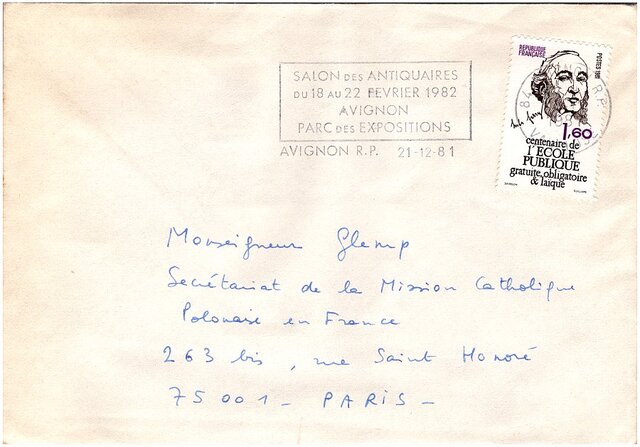 SALON DES ANTIQUAIRES
DU 18 AU 22 FEVRIER 1982
AVIGNON
PARC DES EXPOSITIONS
AVIGNON R.P. 21-12-81
REPUBLIQUE
FRANÇAISE
POSTES 1981
1,60
centenaire de
l'ECOLE
PUBLIQUE
gratuite, obligatoire
& laïque
Monseigneur Glemp
Secrétariat de la Mission Catholique
Polonaise en France
263 bis, rue Saint Honoré
75001 - PARIS -